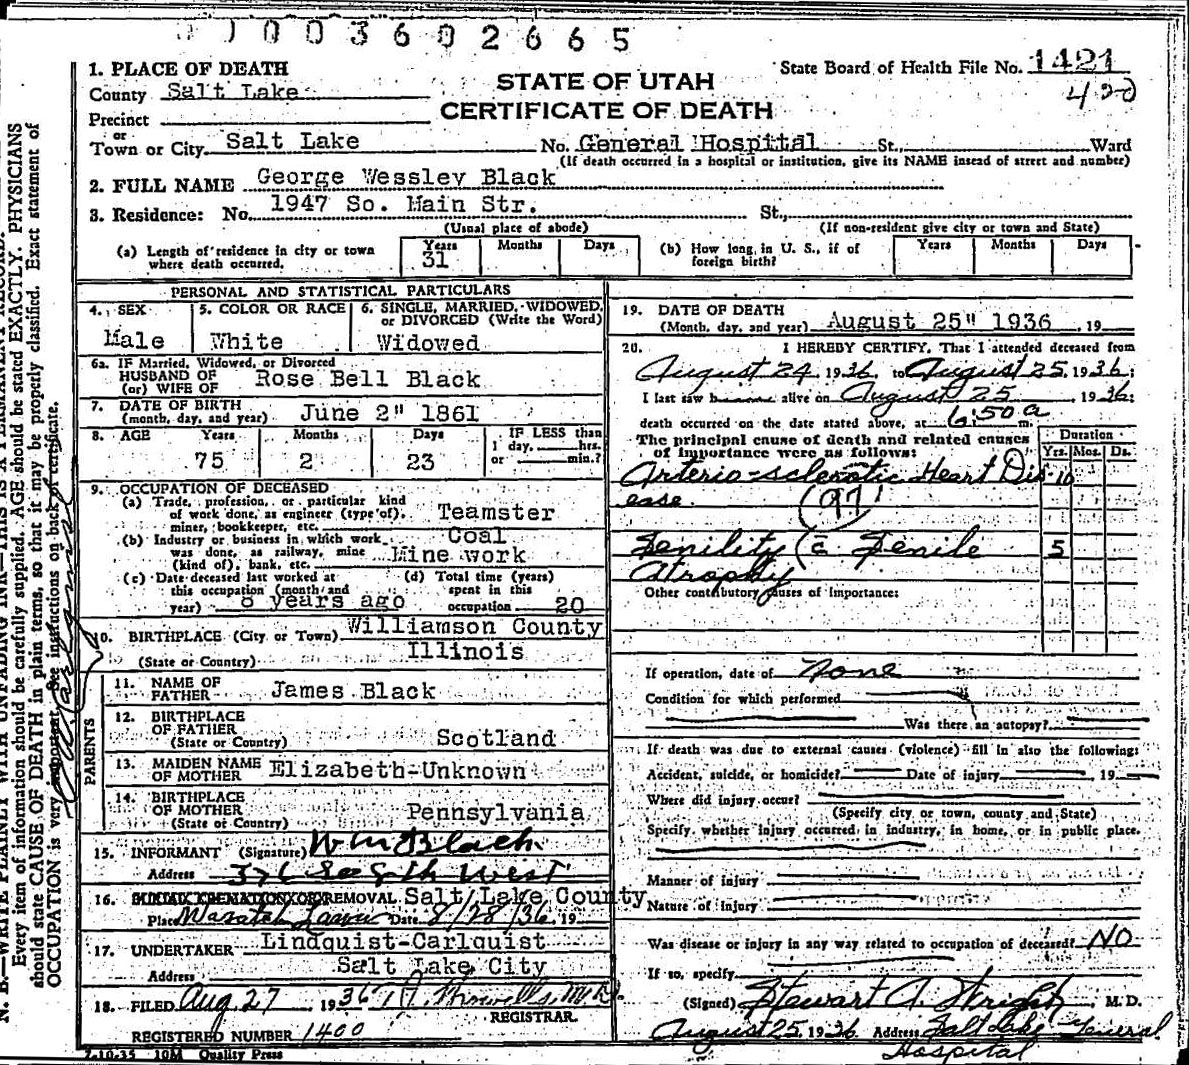 0 1 0 0 3 6 0 2 6 6 5
1. PLACE OF DEATH
County Salt Lake
Precinct
or
Town or City Salt Lake
STATE OF UTAH
CERTIFICATE OF DEATH
State Board of Health File No. 1421
No. General Hospital St., Ward
(If death occurred in a hospital or institution, give its NAME insead of street and number)
2. FULL NAME George Wessley Black
3. Residence: No. 1947 So. Main Str. St.,
(Usual place of abode)
(If non-resident give city or town and State)
(a) Length of residence in city or town
where death occurred.
Years Months Days
31
(b) How long in U. S., if of
foreign birth?
Years Months Days
PERSONAL AND STATISTICAL PARTICULARS
4. SEX
Male
5. COLOR OR RACE
White
6. SINGLE, MARRIED, WIDOWED,
or DIVORCED (Write the Word)
Widowed
6a. IF Married, Widowed, or Divorced
HUSBAND OF
(or) WIFE OF Rose Bell Black
7. DATE OF BIRTH
(month, day, and year) June 2" 1861
8. AGE Years Months Days
75 2 23
IF LESS than
1 day, hrs.
or min.?
9. OCCUPATION OF DECEASED
(a) Trade, profession, or particular kind
of work done, as engineer (type of),
miner, bookkeeper, etc. Teamster
(b) Industry or business in which work
was done, as railway, mine
(kind of), bank, etc. Coal
Mine work
(c) Date deceased last worked at
this occupation (month and
year) 8 years ago
(d) Total time (years)
spent in this
occupation 20
10. BIRTHPLACE (City or Town) Williamson County
(State or Country) Illinois
PARENTS
11. NAME OF
FATHER James Black
12. BIRTHPLACE
OF FATHER
(State or Country) Scotland
13. MAIDEN NAME
OF MOTHER Elizabeth-Unknown
14. BIRTHPLACE
OF MOTHER
(State or Country) Pennsylvania
15. INFORMANT (Signature) Wm Black
Address 376 So 8th West
16. BURIAL CREMATION OR REMOVAL Salt Lake County
Place Wasatch Lawn Date 8/28/36 19
17. UNDERTAKER Lindquist-Carlquist
Address Salt Lake City
18. FILED Aug 27 1936
REGISTRAR.
REGISTERED NUMBER 1400
7-10-35 10M Quality Press
19. DATE OF DEATH
(Month, day, and year) August 25" 1936 , 19
20. I HEREBY CERTIFY, That I attended deceased from
August 24 1936 to August 25 1936;
I last saw h alive on August 25 1936;
death occurred on the date stated above, at 6:50 a m.
The principal cause of death and related causes
of importance were as follows:
Duration
Yrs. Mos. Ds.
Arterio-sclerotic Heart Dis- 10
ease.
(97)
Senility c̄ Senile 5
Atrophy
Other contributory causes of importance:
If operation, date of None
Condition for which performed
Was there an autopsy?
If death was due to external causes (violence) fill in also the following:
Accident, suicide, or homicide? Date of injury 19
Where did injury occur?
(Specify city or town, county and State)
Specify whether injury occurred in industry, in home, or in public place.
Manner of injury
Nature of injury
Was disease or injury in any way related to occupation of deceased? NO
If so, specify
(Signed) Stewart A. Wright, M. D.
August 25 1936 Address Salt Lake General
Hospital
N. B.—WRITE PLAINLY WITH UNFADING INK—THIS IS A PERMANENT RECORD.
Every item of information should be carefully supplied. AGE should be stated EXACTLY. PHYSICIANS
should state CAUSE OF DEATH in plain terms, so that it may be properly classified. Exact statement of
OCCUPATION is very important. See instructions on back of certificate.